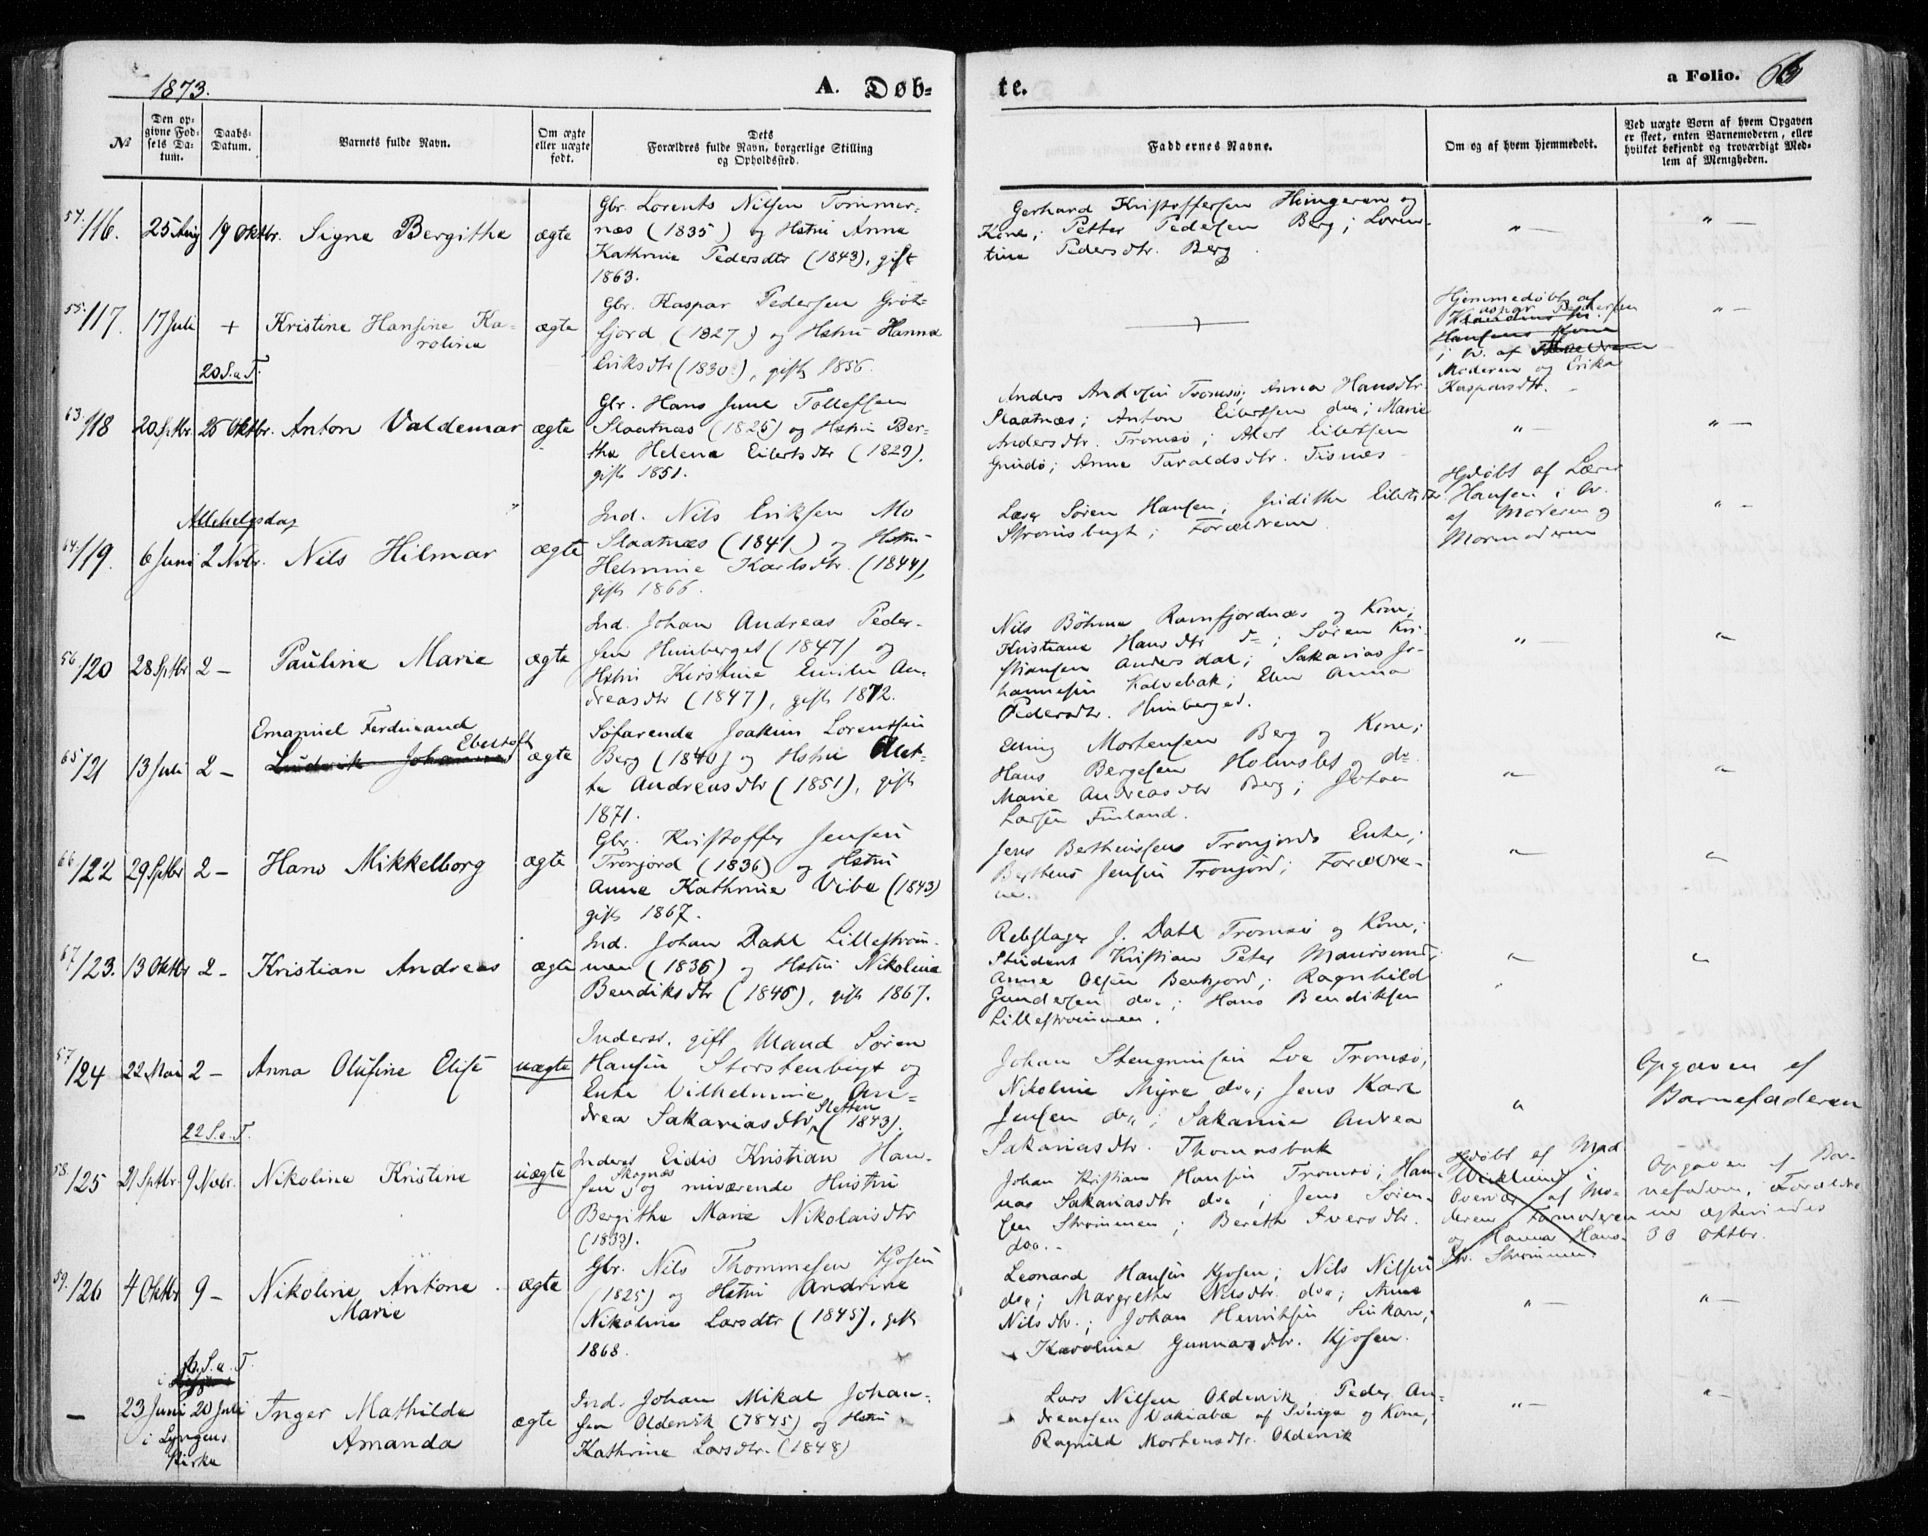 1873.
A. Døb-
te.
a Folio. 66
№
Den op-
givne Fød-
sels Da-
tum.
Daabs-
Datum.
Barnets fulde Navn.
Om ægte
eller uægte
født.
Dets
Forældres fulde Navn, borgerlige Stilling
og Opholdssted.
Faddernes Navne.
Om og af hvem hjemmedøbt.
Ved uægte Børn af hvem Opgaven
er skeet, enten Barnemoderen, eller
hvilket bekjendt og troværdigt Med-
lem af Menigheden.
57. 116. 25 Aug 19 Oktbr. Signe Bergitha ægte
Gbr. Lorents Nilsen Tommer-
næs (1835) og Hstru Anne
Kathrine Pedersdtr (1843), gift
1863.
Gerhard Kristoffersen Hungeren og
Kone; Petter Pedersen Berg; Loren-
tine Pedersdtr. Berg
" —
" —
55. 117. 17 Juli + Kristine Hansine Ka-
roline
ægte
Gbr. Kaspar Pedersen Grøt-
fjord (1827) og Hstru Hanna
Eriksdtr (1830), gift 1856.
Hjemmedøbt af
Kaspar Pedersen
Hansens Kone
i Ov. af
Moderen og Erika
Kaspersdtr.
" —
20 S. a T.
63. 118 20 Sptbr. 25 Oktbr. Anton Valdemar ægte
Gbr. Hans Junl Tollefsen
Slaatnæs (1825) og Hstru Ber-
tha Helena Eilertsdtr (1829),
gift 1851.
Anders Andersen Tromsø; Anna Hansdtr.
Slaatnæs; Anton Eilertsen doa; Marie
Andersdtr. Tromsø; Alert Eilertsen
Grindø; Anne Taraldsdtr. Tisnes
" —
" —
Allehelgsdag
64. 119. 6 Juni 2 Novbr. Nils Hilmar ægte
Ind. Nils Eriksen Mo
Slaatnæs (1841) og Hstru
Helmine Karlsdtr. (1844),
gift 1866.
Lærer Søren Hansen; Juditha Eilertsdtr.
Strømsbugt; Forældrene
Hjdøbt af Lærer
Hansen i Ov.
af Moderen og
Mormoderen
" —
56 120 28 Sptbr 2 — Pauline Marie ægte
Ind. Johan Andreas Peder-
sen Hunberget (1847) og
Hstru Kirstine Emilie An-
dreasdtr (1847), gift 1872.
Nils Böhme Ramfjordnæs og Kone;
Kristiane Hansdtr do; Søren Kri-
stiansen Andersdal; Sakarias Jo-
hannesen Kalvebak; Elen Anna
Pedersdtr. Hunberged.
" —
"
65 121 13 Juli 2 — Emanuel Ferdinand
Ebeltoft
Ludvik Johannes
ægte
Søfarende Joakim Lorentsen
Berg (1840) og Hstru Alet-
te Andreasdtr (1851), gift
1871.
Elling Mortensen Berg og Kone;
Hans Bergesen Holmslet og do.
Marie Andreasdtr Berg; Johan
Larsen Finland.
"
"
66 122 29 Sptbr 2 — Hans Mikkelborg ægte
Gbr. Kristoffer Jensen
Tronjord (1836) og Hstru
Anne Kathrine Vibe (1843)
gift 1867.
Jens Berthenssens Tronjords Enke;
Berthens Jensen Tronjord; Forældre-
ne.
"
"
67 123. 13 Oktbr 2 — Kristian Andreas ægte
Ind. Johan Dahl Lillestrøm-
men (1836) og Hstru Nikoline
Bendiksdtr (1846), gift 1867.
Rebslager J. Dahl Tromsø og Kone;
Student Kristian Peter Maursund;
Anne Olsen Berkjord; Ragnhild
Gundersen doa; Hans Bendiksen
Lillestrømmen.
"
"
57 124 22 Mai 2 — Anna Olufine Elise uægte
Inderst. gift Mand Søren
Hansen Storstenbugt og
Enke Vilhelmine An-
drea Sakariasdtr, Sletten (1843).
Johan Stengrimsen Loe Tromsø;
Nikoline Myre doa; Jens Karl
Jensen do"; Sakarine Andrea
Sakariasdtr. Thomasbuk
"
Opgaven af
Barnefaderen
22 S. a. T.
58. 125 21 Sptbr. 9 Novbr. Nikoline Kristine uægte
Inderst Eidis Kristian Han-
sen Skognæs og nuværende Hustru
Bergitha Marie Nikolaisdtr
(1833).
Johan Kristian Hansen Tromsø; Han-
nas Sakariasdtr doa; Jens Søren-
sen Strømmen; Bereth Iversdtr.
doa.
Hjdøbt af Mad
Wiklund i
Overvær af Mo-
deren, Farmoderen
og Hanna Hans-
dtr. Strømmen.
Opgaven af Bar-
nefaderen, Forældre
ne ægteviedes
30 Oktbr.
59. 126 4 Oktbr 9 — Nikoline Antone
Marie
ægte
Gbr. Nils Thommesen Kjosen
(1825) og Hstru Andrine
Nikoline Larsdtr (1845), gift
1868.
Leonard Hansen Kjosen; Nils Nilsen
doa; Margrethe Nilsdtr. doa; Anne
Nilsdtr.; Johan Henriksen
Karoline Gunnarsdtr. Kjosen.
" —
" —
6. S. a. T.
— 23 Juni 20 Juli Inger Mathilde
i Lyngens Amanda
Kirke
ægte
Ind. Johan Mikal Johan-
sen Oldervik (1845) og Hstru
Kathrine Larsdtr. (1848)
Lars Nilsen Oldervik; Peder An-
dreassen af Sverige og Kone,
Ragnild Mortensdtr. Oldervik
" —
" —